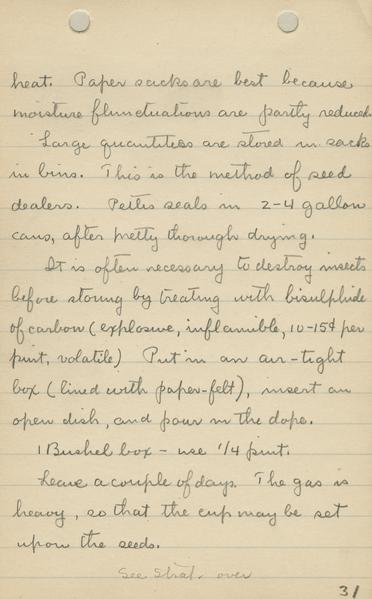 heat. Paper sacks are best because
moisture flunctuations are partly reduced.
Large quantities are stored in sacks
in bins. This is the method of seed
dealers. Pettis seals in 2-4 gallon
cans, after pretty thorough drying.
It is often necessary to destroy insects
before storing by treating with bisulphide
of carbon (explosive, inflamible, 10-15¢ per
pint, volatile) Put in an air-tight
box (lined with paper-felt), insert an
open dish, and pour in the dope.
1 Bushel box - use 1/4 pint.
Leave a couple of days. The gas is
heavy, so that the cup may be set
upon the seeds.
See Strat. over
31